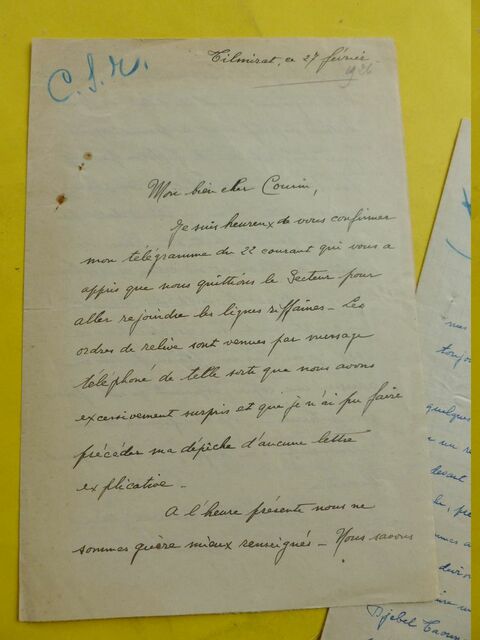 C. S. R.
Tilmirat, ce 27 février
1926
Mon bien cher Cousin,
Je suis heureux de vous confirmer
mon télégramme du 22 courant qui vous a
appris que nous quittions le Secteur pour
aller rejoindre les lignes riffaines - Les
ordres de relève sont venues par message
téléphoné de telle sorte que nous avons
excessivement surpris et que je n'ai pu faire
précéder ma dépêche d'aucune lettre
explicative -
A l'heure présente nous ne
sommes guère mieux renseignés - Nous savons
toujo
quelques
devant
Djebel